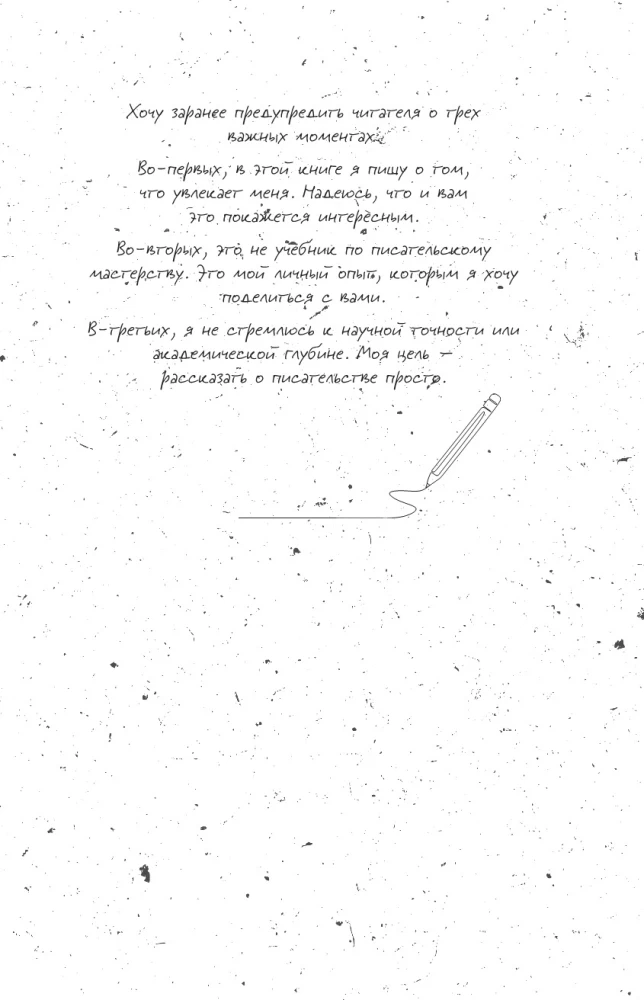 Хочу заранее предупредить читателя о трех
важных моментах.
Во-первых, в этой книге я пишу о том,
что увлекает меня. Надеюсь, что и вам
это покажется интересным.
Во-вторых, это не учебник по писательскому
мастерству. Это мой личный опыт, которым я хочу
поделиться с вами.
В-третьих, я не стремлюсь к научной точности или
академической глубине. Моя цель —
рассказать о писательстве просто.